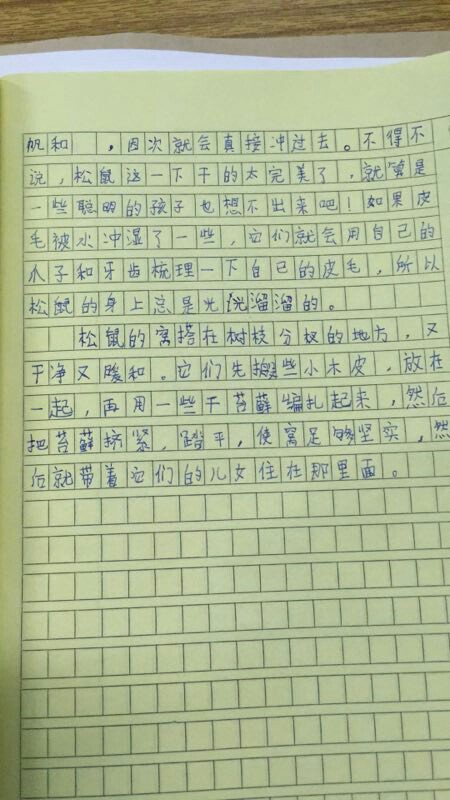 帆和　，因次就会真接冲过去。不得不
说，松鼠这一下干的太完美了，就算是
一些聪明的孩子也想不出来吧！如果皮
毛被水冲湿了一些，它们就会用自己的
爪子和牙齿梳理一下自己的皮毛，所以
松鼠的身上总是光溜溜的。
松鼠的窝搭在树枝分杈的地方，又
干净又暖和。它们先搬些小木皮，放在
一起，再用一些干苔藓编扎起来，然后
把苔藓挤紧，踏平，使窝足够坚实，然
后就带着它们的儿女住在那里面。